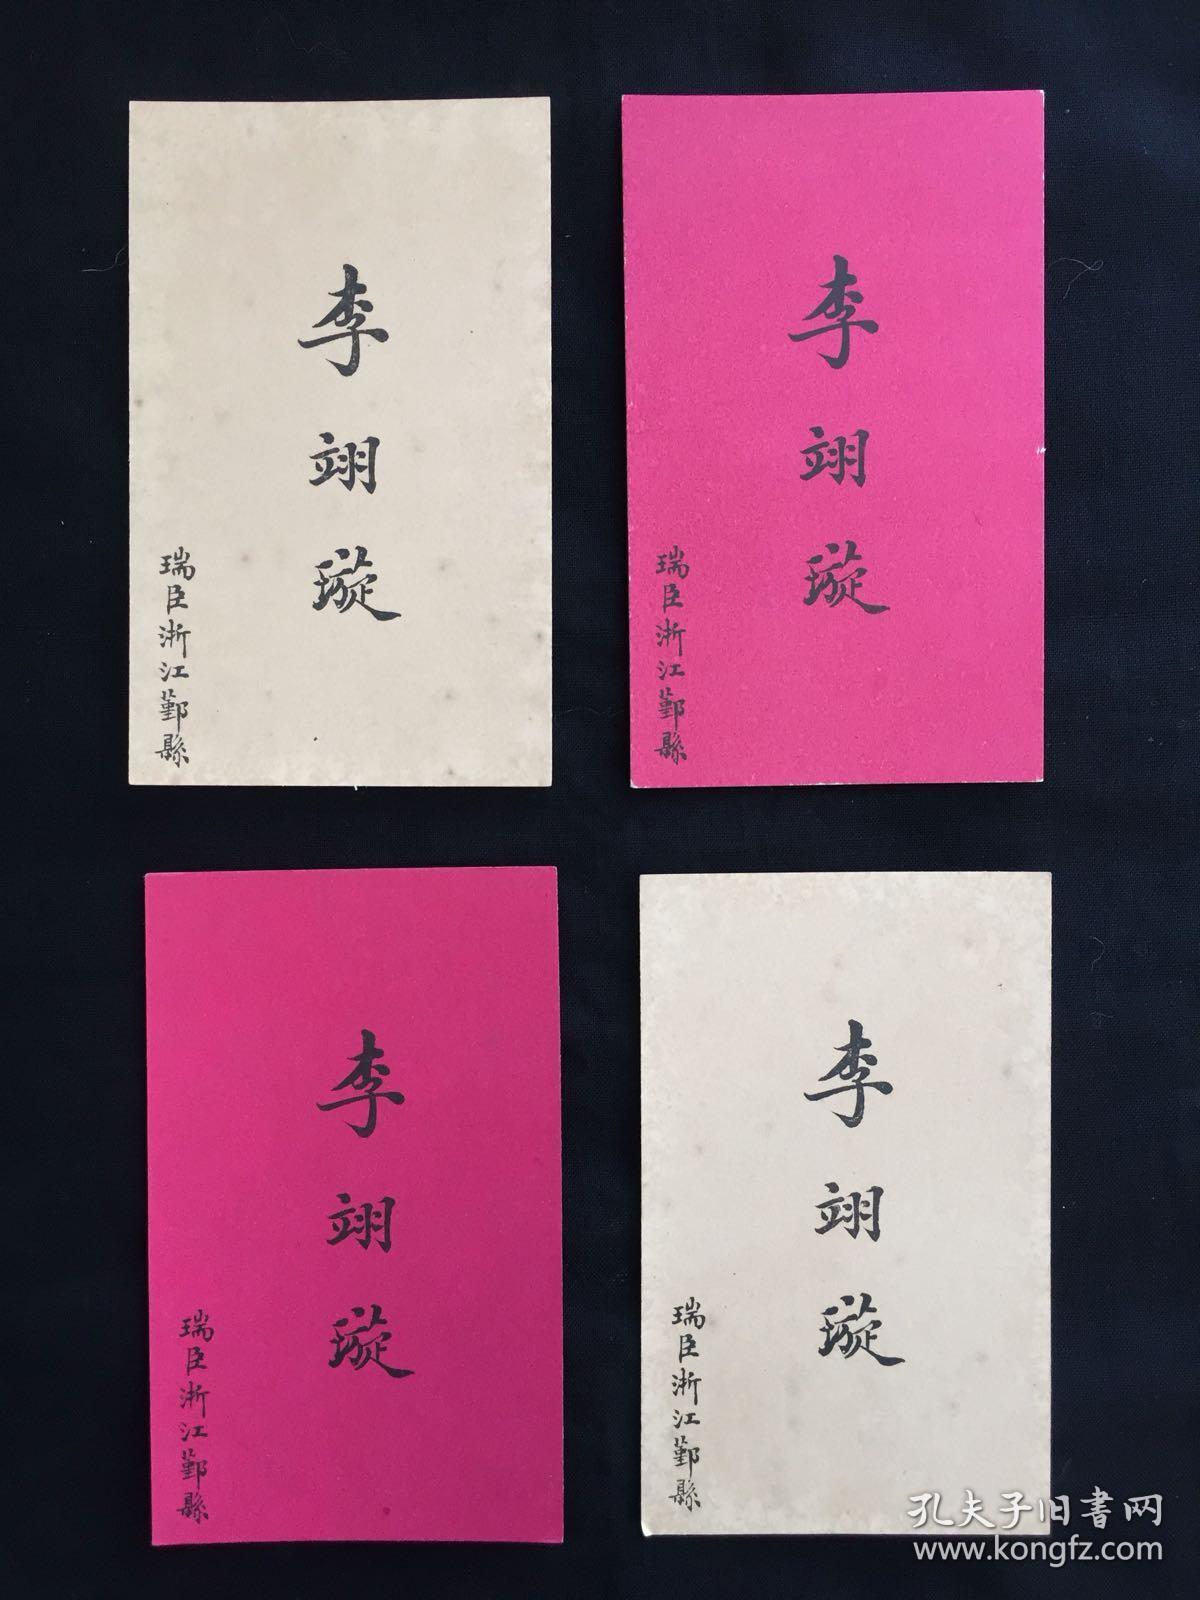 李翊璇
瑞臣浙江鄞縣
李翊璇
瑞臣浙江鄞縣
李翊璇
瑞臣浙江鄞縣
李翊璇
瑞臣浙江鄞縣
孔夫子旧书网
www.kongfz.com